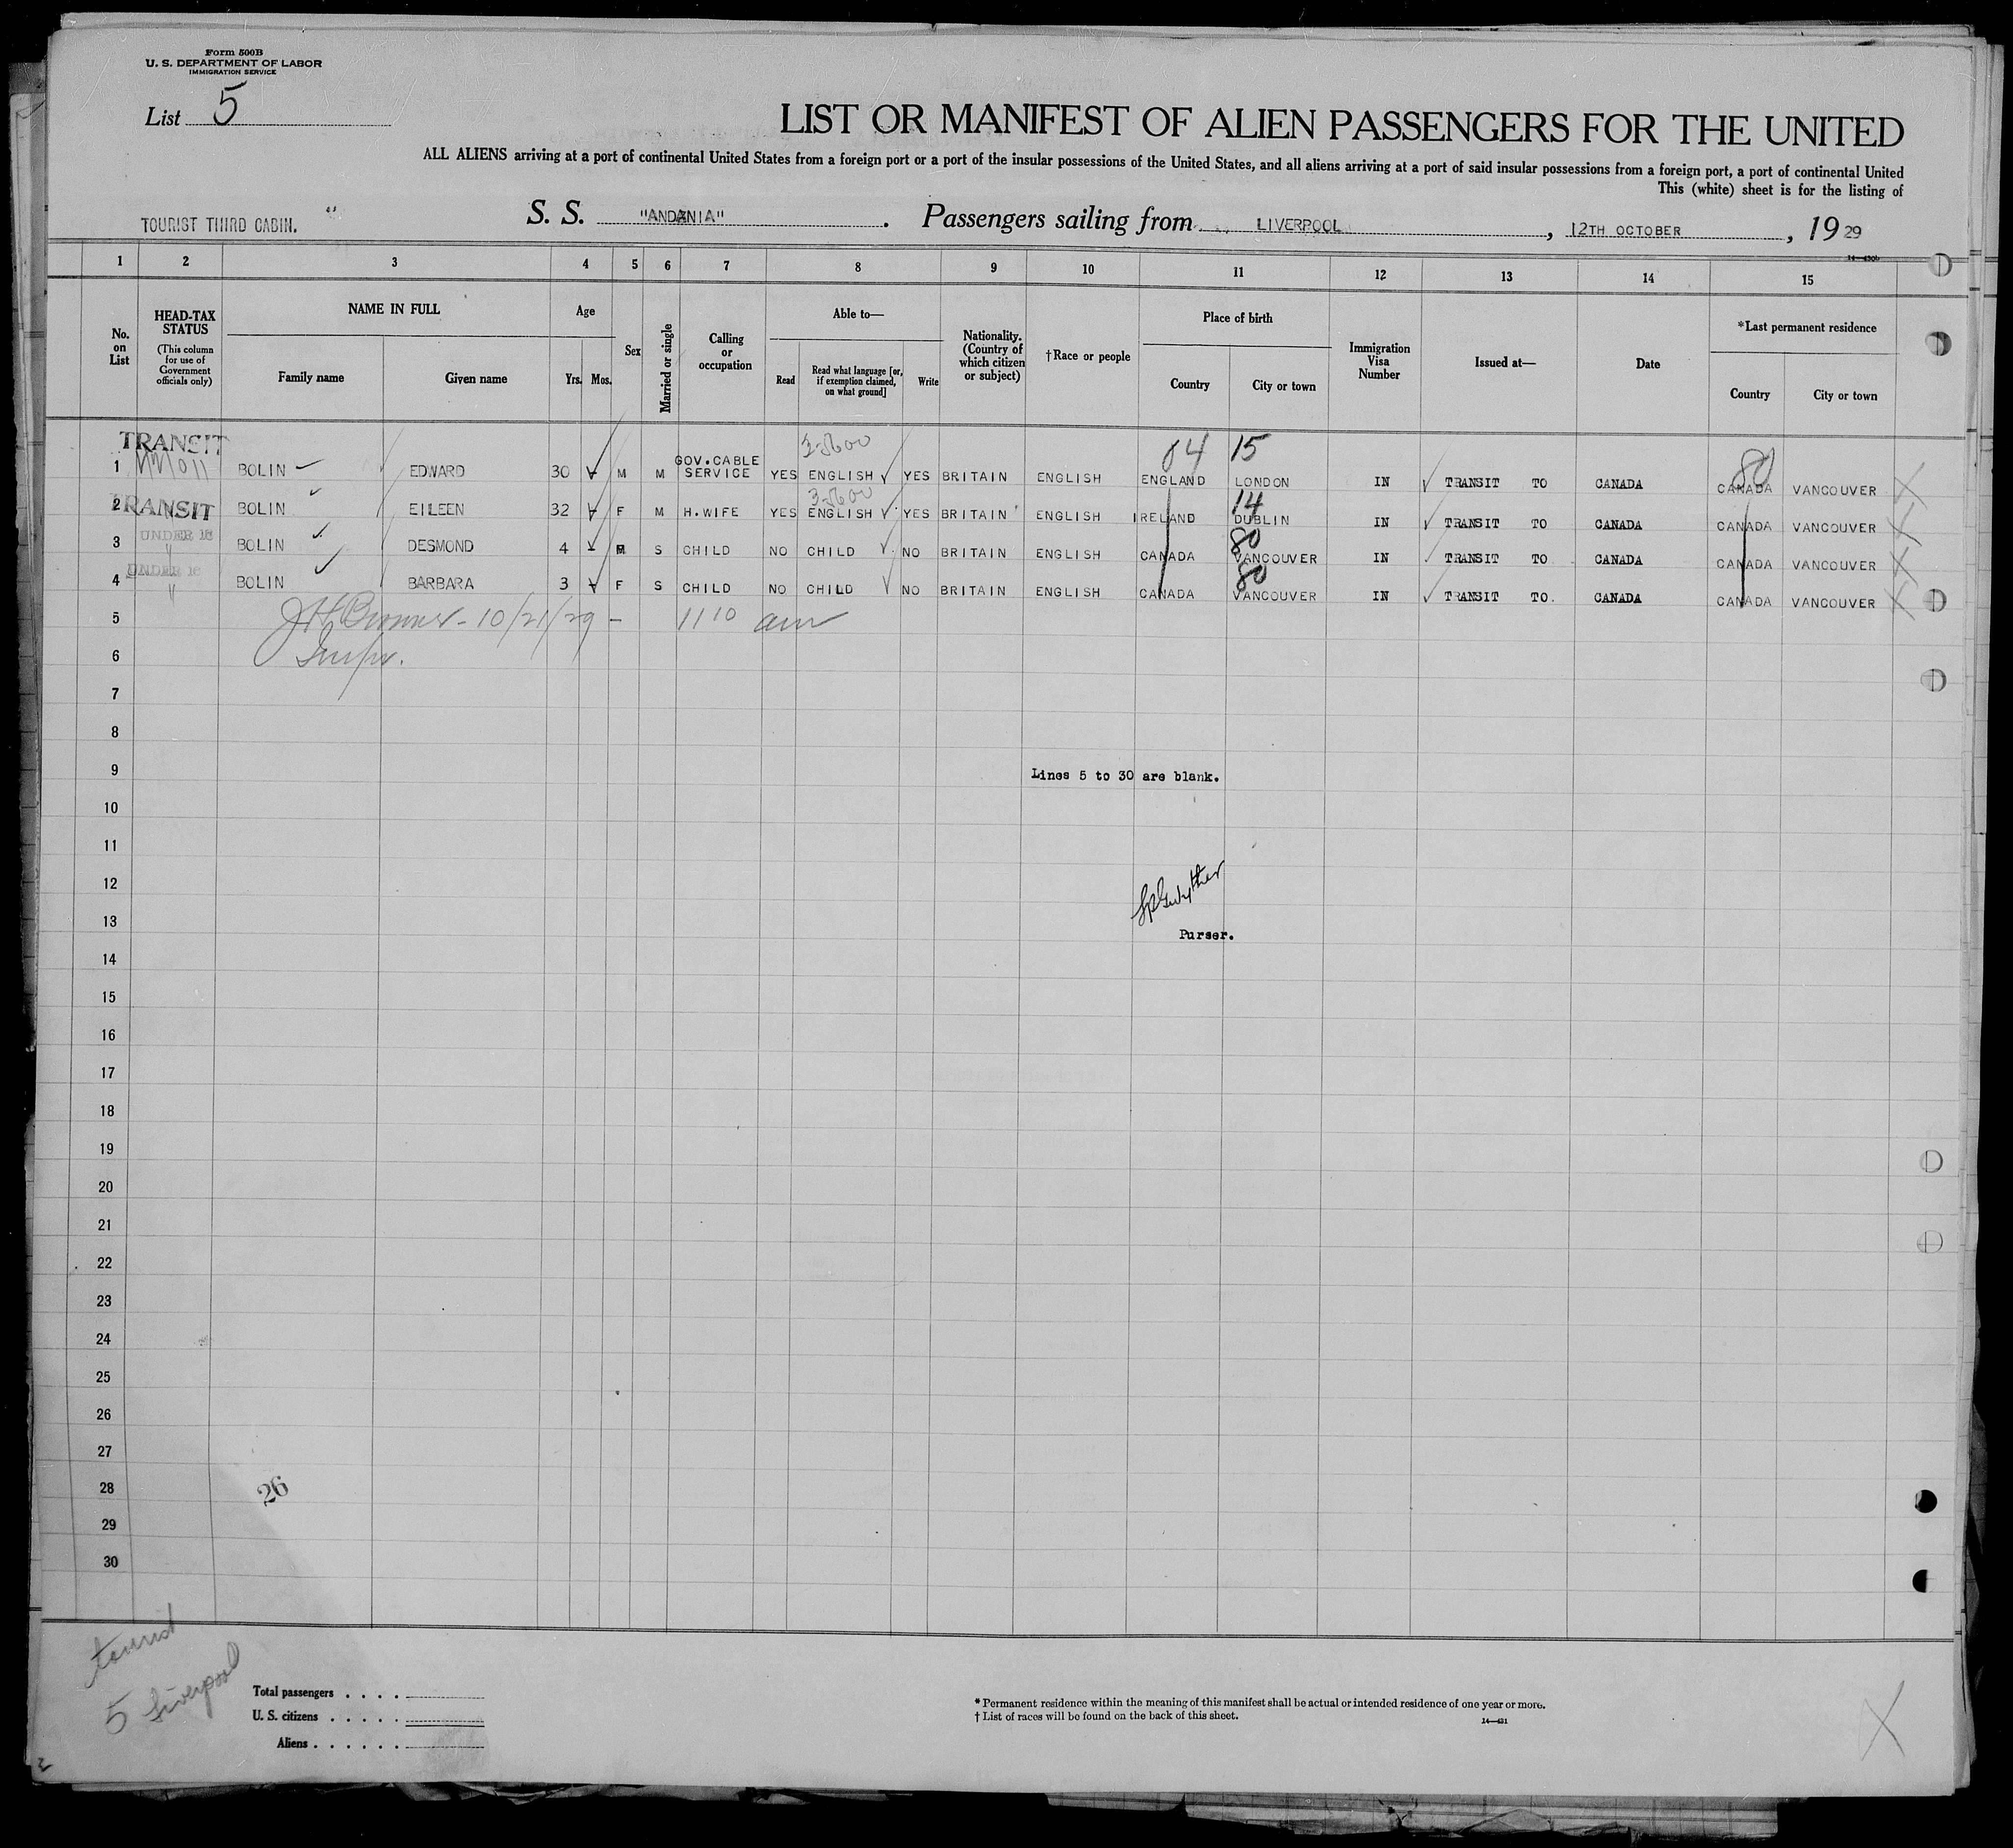 Form 500B
U. S. DEPARTMENT OF LABOR
IMMIGRATION SERVICE
List 5
LIST OR MANIFEST OF ALIEN PASSENGERS FOR THE UNITED
ALL ALIENS arriving at a port of continental United States from a foreign port or a port of the insular possessions of the United States, and all aliens arriving at a port of said insular possessions from a foreign port, a port of continental United
This (white) sheet is for the listing of
TOURIST THIRD CABIN. S. S. "ANDANIA" . Passengers sailing from LIVERPOOL , 12TH OCTOBER , 19 29
14—430b
1 2 3 4 5 6 7 8 9 10 11 12 13 14 15
No. on List
HEAD-TAX STATUS
(This column for use of Government officials only)
NAME IN FULL
Family name Given name
Age
Yrs. Mos.
Sex
Married or single
Calling or occupation
Able to—
Read
Read what language [or, if exemption claimed, on what ground]
Write
Nationality. (Country of which citizen or subject)
†Race or people
Place of birth
Country City or town
Immigration Visa Number
Issued at—
Date
*Last permanent residence
Country City or town
TRANSIT 84 15 80
1 BOLIN EDWARD 30 M M GOV.CABLE SERVICE YES ENGLISH YES BRITAIN ENGLISH ENGLAND LONDON IN TRANSIT TO CANADA CANADA VANCOUVER
TRANSIT 14
2 BOLIN EILEEN 32 F M H.WIFE YES ENGLISH YES BRITAIN ENGLISH IRELAND DUBLIN IN TRANSIT TO CANADA CANADA VANCOUVER
UNDER 16 80
3 BOLIN DESMOND 4 M S CHILD NO CHILD NO BRITAIN ENGLISH CANADA VANCOUVER IN TRANSIT TO CANADA CANADA VANCOUVER
UNDER 16 80
4 BOLIN BARBARA 3 F S CHILD NO CHILD NO BRITAIN ENGLISH CANADA VANCOUVER IN TRANSIT TO. CANADA CANADA VANCOUVER
5 10/21/29 – 11 10 am
6
7
8
9 Lines 5 to 30 are blank.
10
11
12
13
Purser.
14
15
16
17
18
19
20
21
22
23
24
25
26
27
28
26
29
30
tourist
5 Liverpool
Total passengers . . . .
U. S. citizens . . . . .
Aliens . . . . . .
* Permanent residence within the meaning of this manifest shall be actual or intended residence of one year or more.
† List of races will be found on the back of this sheet.
14—431